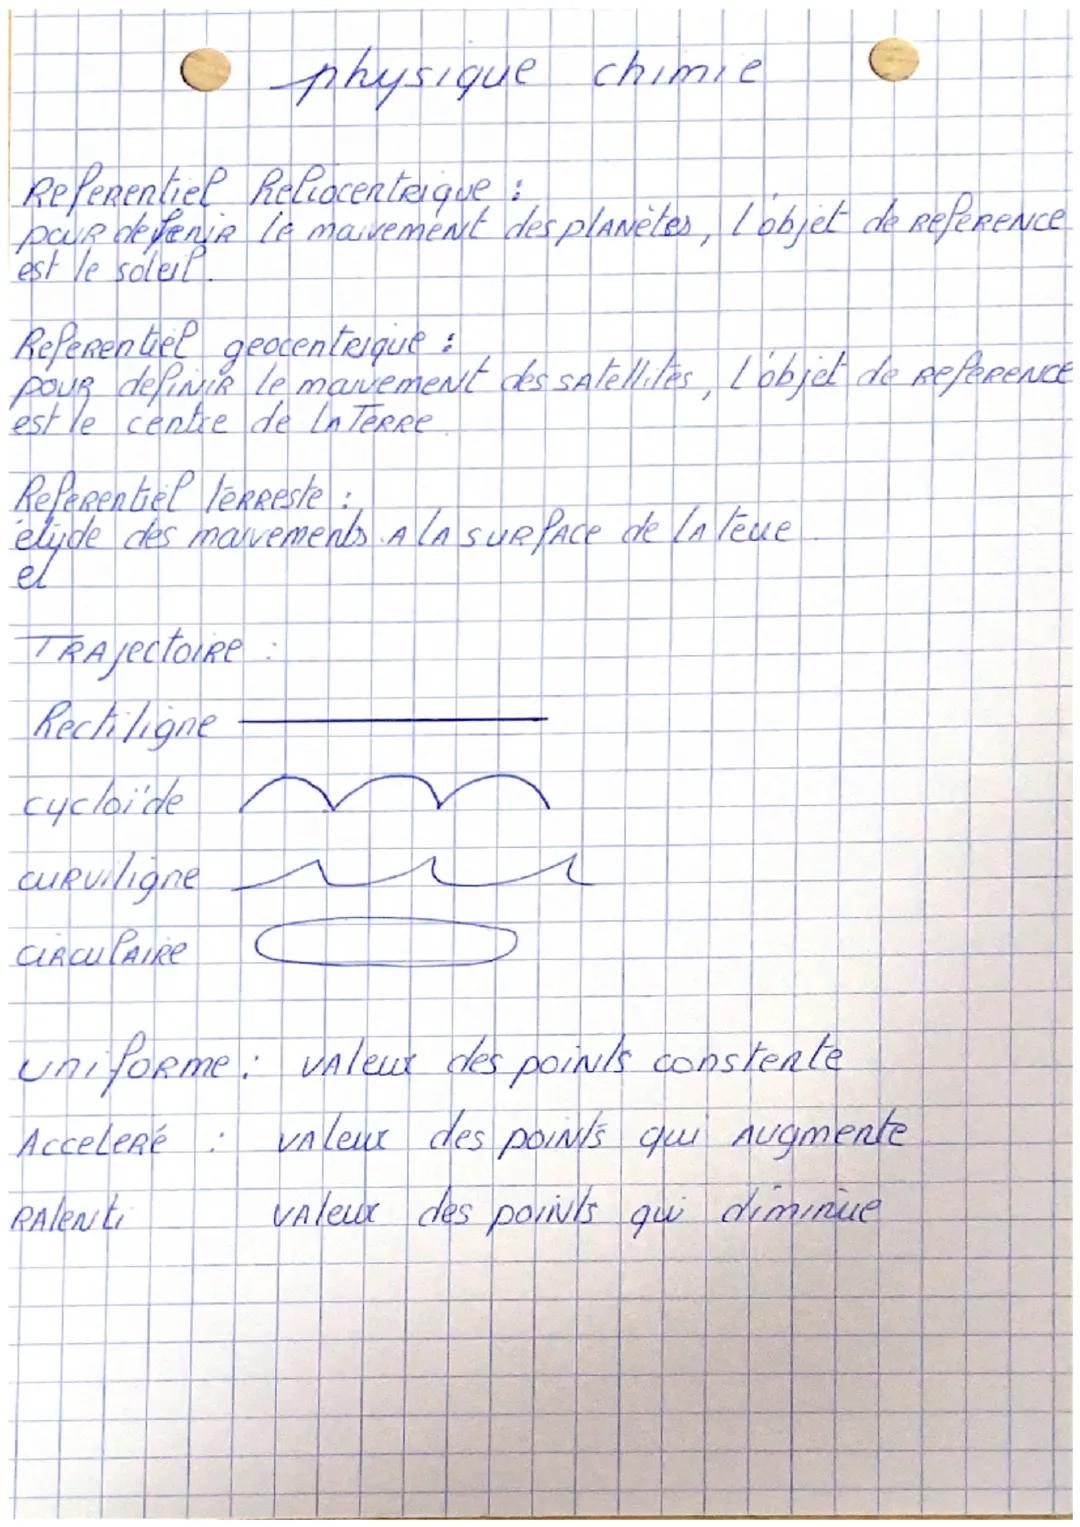 physique chimie
Referentiel heliocentrique :
pour defenir le mouvement des planètes, l'objet de reference
est le soleil.
Referentiel geocentrique :
pour definir le mouvement des satellites, l'objet de reference
est le centre de la Terre.
Referentiel terreste :
étyde des mouvements a la surface de la terre
el
Trajectoire :
Rectiligne
cycloïde
curviligne
circulaire
uniforme : valeur des points constente
Acceleré : valeur des points qui augmente
Ralenti valeur des points qui diminue